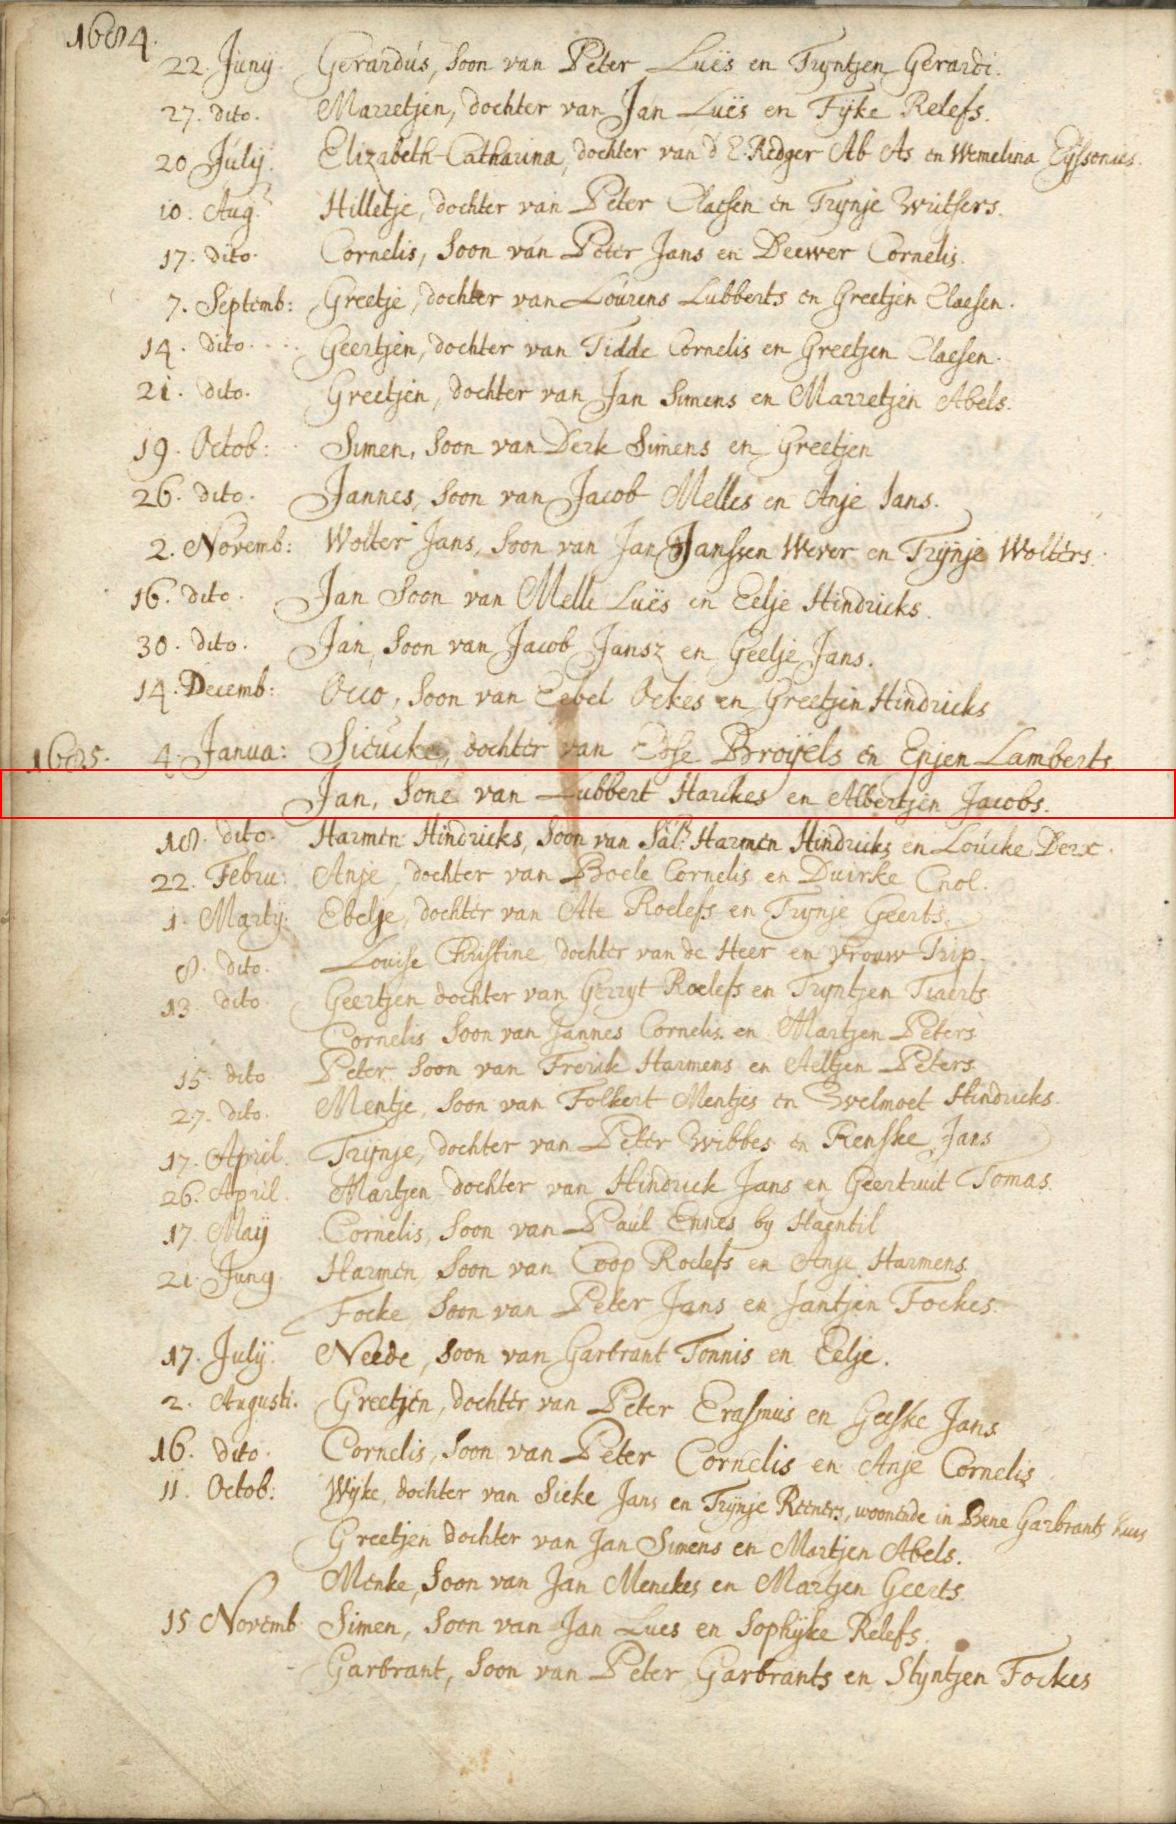 1684.
22. Juny. Gerardus, Soon van Peter Luës en Tryntjen Gerardi.
27. dito. Marretjen, dochter van Jan Luës en Fijke Relefs.
20 July. Elizabeth Catharina, dochter van d' E. Redger Ab As en Wemelina Eyssonius.
10. Aug. Hilletje, dochter van Peter Claesen en Trynje Writsers.
17. dito. Cornelis, Soon van Peter Jans en Deewer Cornelis.
7. Septemb: Greetje, dochter van Lourens Lubberts en Greetjen Claesen.
14. dito. Geertjen, dochter van Tidde Cornelis en Greetjen Claesen.
21. dito. Greetjen, dochter van Jan Simens en Marretjen Abels.
19. Octob: Simen, Soon van Derk Simens en Greetjen
26. dito. Jannes, Soon van Jacob Melles en Anje Jans.
2. Novemb: Wolter Jans, Soon van Jan Janssen Wever en Trijnje Wolters.
16. dito. Jan Soon van Melle Luës en Eelje Hindricks.
30. dito. Jan, Soon van Jacob Jansz en Geelje Jans.
14. Decemb: Occo, Soon van Eebel Ockes en Greetjen Hindricks
1685. 4. Janua: Sieucke, dochter van Edse Broijels en Epjen Lamberts.
Jan, Sone van Lubbert Harckes en Albertjen Jacobs.
18. dito. Harmen Hindricks, Soon van Sal: Harmen Hindricks en Loucke Derx.
22. Febru: Anje, dochter van Boele Cornelis en Duirke Cnol.
1. Martij. Ebelje, dochter van Ate Roelefs en Trynje Geerts.
8. dito. Louise Christine dochter van de Heer en Vrouw Trip.
13. dito. Geertjen dochter van Gerryt Roelefs en Tryntjen Tiaerts
Cornelis Soon van Jannes Cornelis en Martjen Peters
15. dito Peter Soon van Frerik Harmens en Aeltjen Peters.
27. dito. Mentje, Soon van Folkert Mentjes en Zwelmoet Hindricks.
17. April. Trijnje, dochter van Peter Wibbes en Renske Jans
26. April. Martjen dochter van Hindrick Jans en Geertruit Tomas.
17. Maij Cornelis, Soon van Paul Ennes by Haentil
21. Juny. Harmen Soon van Coop Roelefs en Anje Harmens.
Focke Soon van Peter Jans en Jantjen Fockes.
17. July. Neede, Soon van Garbrant Tonnis en Eelje.
2. Augusti. Greetjen, dochter van Peter Erasmus en Geeske Jans
16. dito. Cornelis, Soon van Peter Cornelis en Anje Cornelis
11. Octob: Wijke, dochter van Sieke Jans en Trijnje Reeners, woonende in Bene Garbrants huis
Greetjen dochter van Jan Simens en Martjen Abels.
Menke, Soon van Jan Menckes en Martjen Geerts.
15 Novemb. Simen, Soon van Jan Lues en Sophijke Relefs.
Garbrant, Soon van Peter Garbrants en Styntjen Fockes